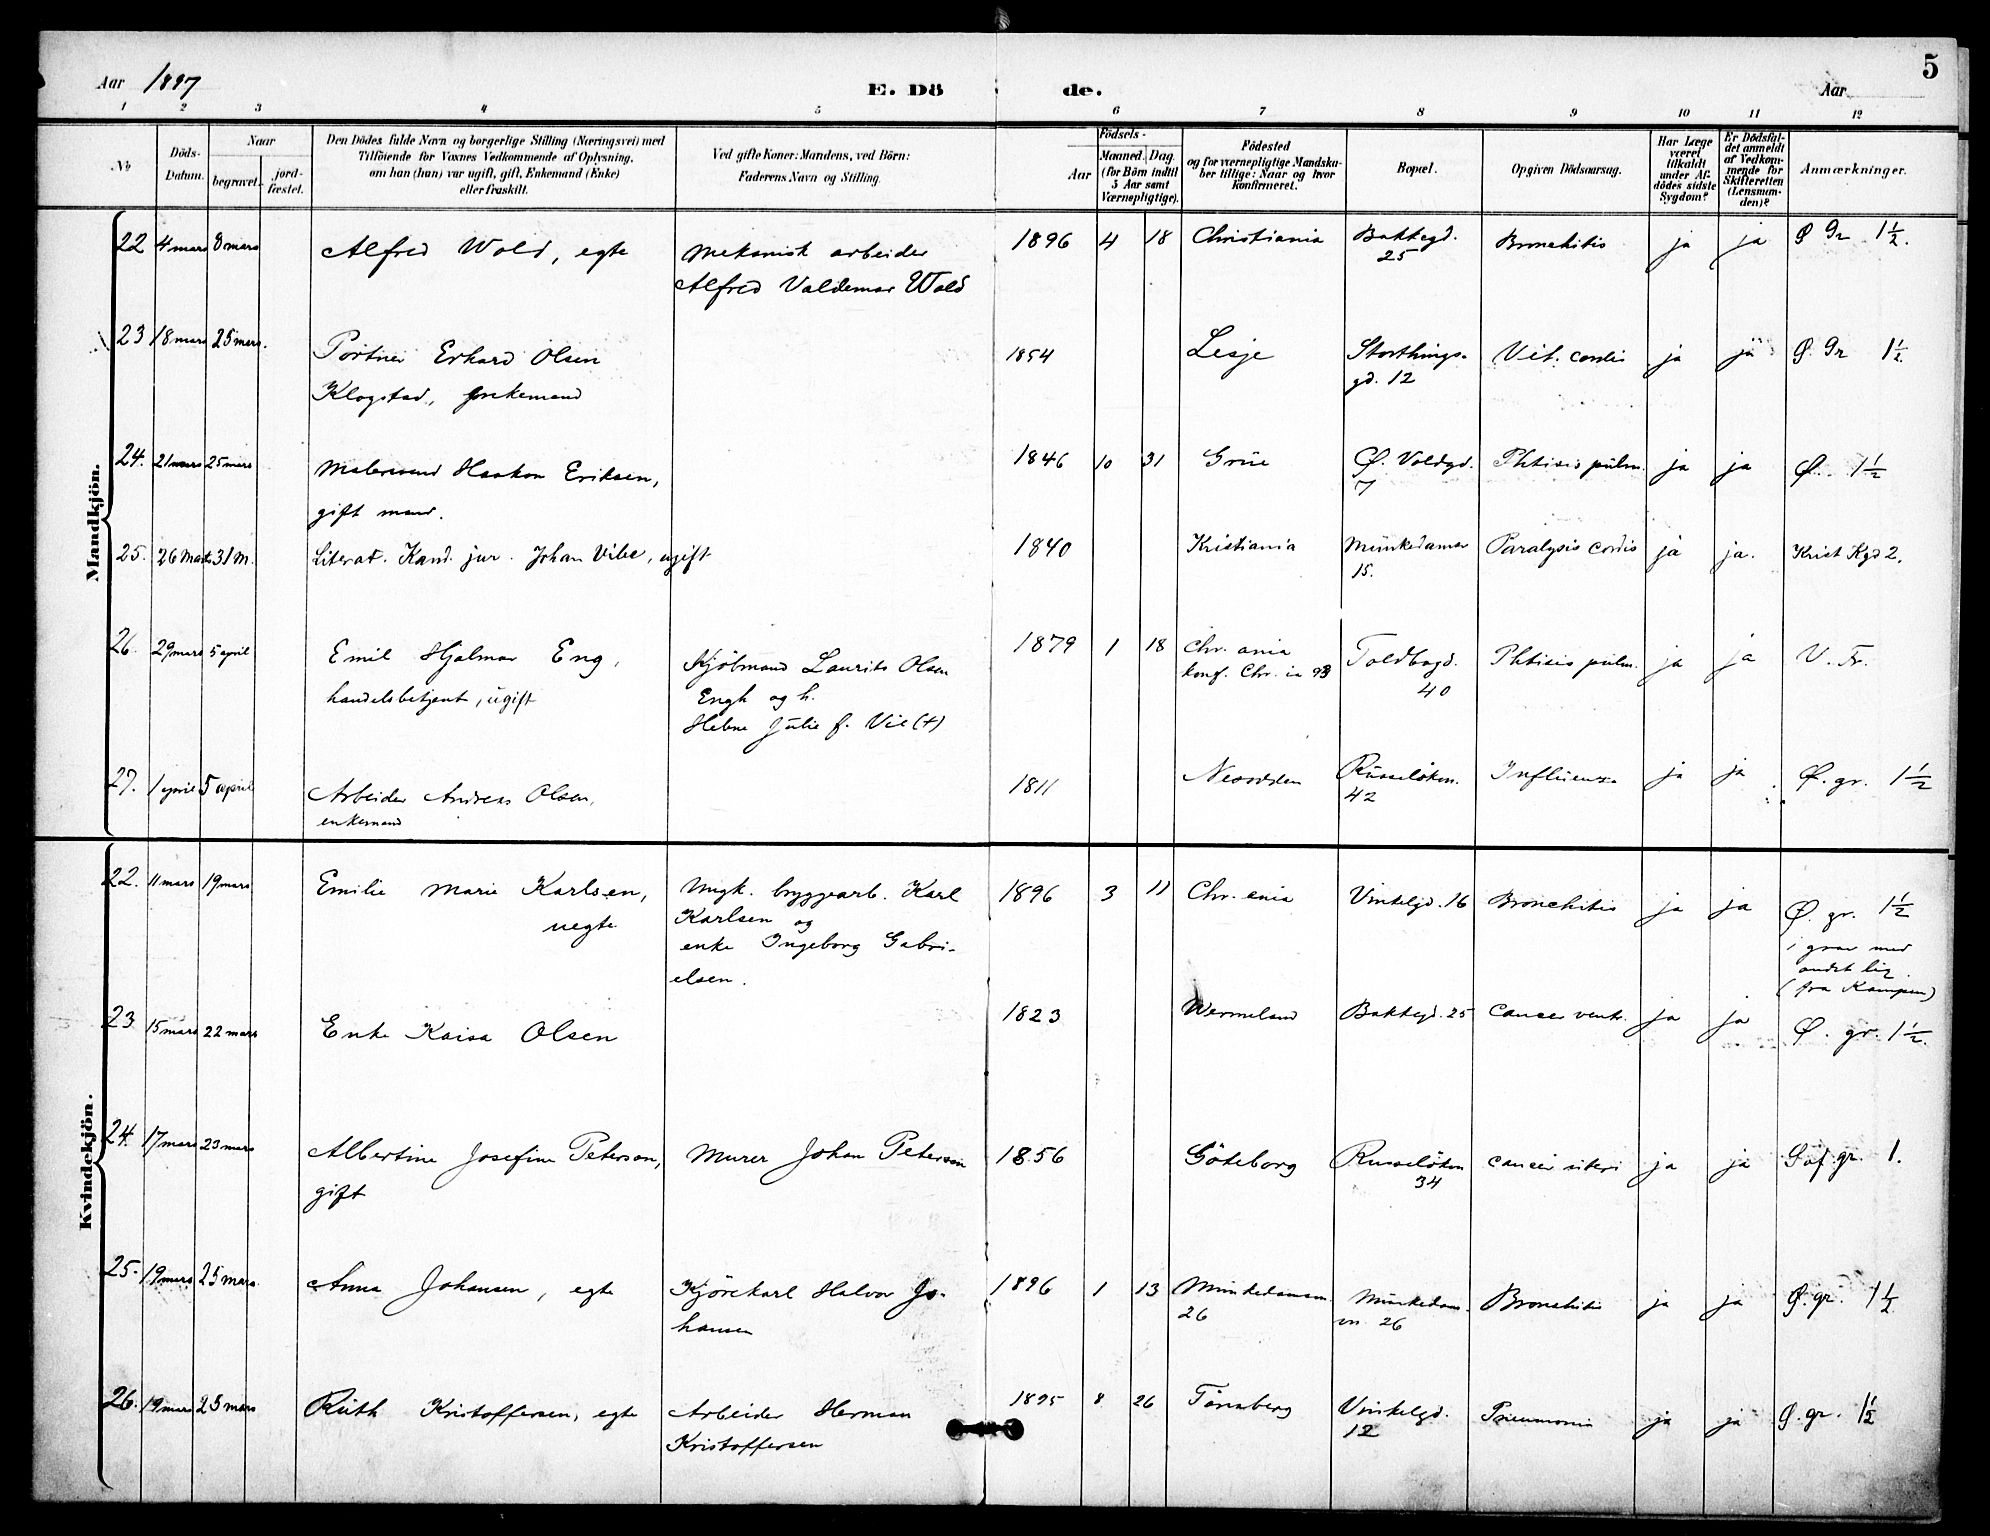 5
Aar 1897
E. Dö de.
Aar
1 2 3 4 5 6 7 8 9 10 11 12
№
Döds-
Datum.
Naar
begravet.
jord-
fæstet.
Den Dödes fulde Navn og borgerlige Stilling (Næringsvei) med
Tilföiende for Voxnes Vedkommende af Oplysning,
om han (hun) var ugift, gift, Enkemand (Enke)
eller fraskilt.
Ved gifte Koner: Mandens, ved Börn:
Faderens Navn og Stilling.
Födsels-
Aar
Maaned. Dag.
(for Börn indtil
5 Aar samt
Værnepligtige).
Födested
og for værnepligtige Mandska-
ber tillige: Naar og hvor
konfirmeret.
Bopæl.
Opgiven Dödsaarsag.
Har Læge
været
tilkaldt
under Af-
dödes sidste
Sygdom?
Er Dödsfal-
det anmeldt
af Vedkom-
mende for
Skifteretten
(Lensman-
den)?
Anmærkninger.
Mandkjön.
22 4 mars 8 mars Alfred Wold, egte Mekanisk arbeider 1896 4 18 Christiania Bakkegd. Bronchitis ja ja Ø Gr 1½.
Alfred Valdemar Wold 25
23 18 mars 25 mars. Portner Erhard Olsen 1854 Lesje Storthings- Vit. cordis ja ja Ø. Gr 1½
Klogstad, enkemand gd. 12
24. 21 mars 25 mars Malersvend Haakon Eriksen, 1846 10 31 Grue Ø. Voldgd. Phtisis pulm. ja ja Ø. 1½
gift mand. 7
25. 26 Marts 31 M. Literat. Kand. jur. Johan Vibe, ugift 1840 Kristiania Munkedamsv Paralysis cordis ja ja. Krist Kgd 2.
15.
26. 29 mars 5 april Emil Hjalmar Eng, Kjöbmand Laurits Olsen 1879 1 18 Chr. ania Toldbogd. Phtisis pulm. ja ja V. Fr.
handelsbetjent, ugift Engh og h. konf. Chr. ia 93 40
Helene Julie f. Vie (+)
27. 1 april 5 april Arbeider Andreas Olsen, 1811 Nesodden Russelökvn. Influenza ja ja Ø. gr. 1½
enkemand 42
Kvindekjön.
22. 11 mars 19 mars Emilie Marie Karlsen, Ungk. byggearb. Karl 1896 3 11 Chr. ania Vinkelgd. 16 Bronchitis ja ja Ø. gr. 1½
uegte Karlsen og i grav med
enke Ingeborg Gabri- andet lig.
elsen. (fra Kampen)
23 15 mars 22 mars Enke Kaisa Olsen 1823 Wermeland Bakkegd. 25 Cancer ventr. ja ja Ø. gr. 1½.
24. 17 mars 23 mars Albertine Josefine Peterson, Murer Johan Peterson 1856 Göteborg Russelökvn Cancer uteri ja ja gr. 1.
gift 34
25. 19 mars 25 mars. Anna Johansen, egte Kjörekarl Halvor Jo- 1896 1 13 Munkedamsvn. Munkedams- Bronchitis ja ja Ø. gr. 1½
hansen 26 vn. 26
26. 19 mars 25 mars Ruth Kristoffersen, egte Arbeider Herman 1895 8 26 Tönsberg Vinkelgd. Pneumonia ja ja Ø. gr. 1½
Kristoffersen 12